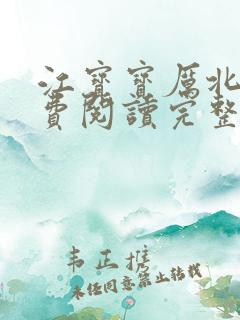 江寶寶厲北
費閱讀完整
韦正推
未经同意禁止转载